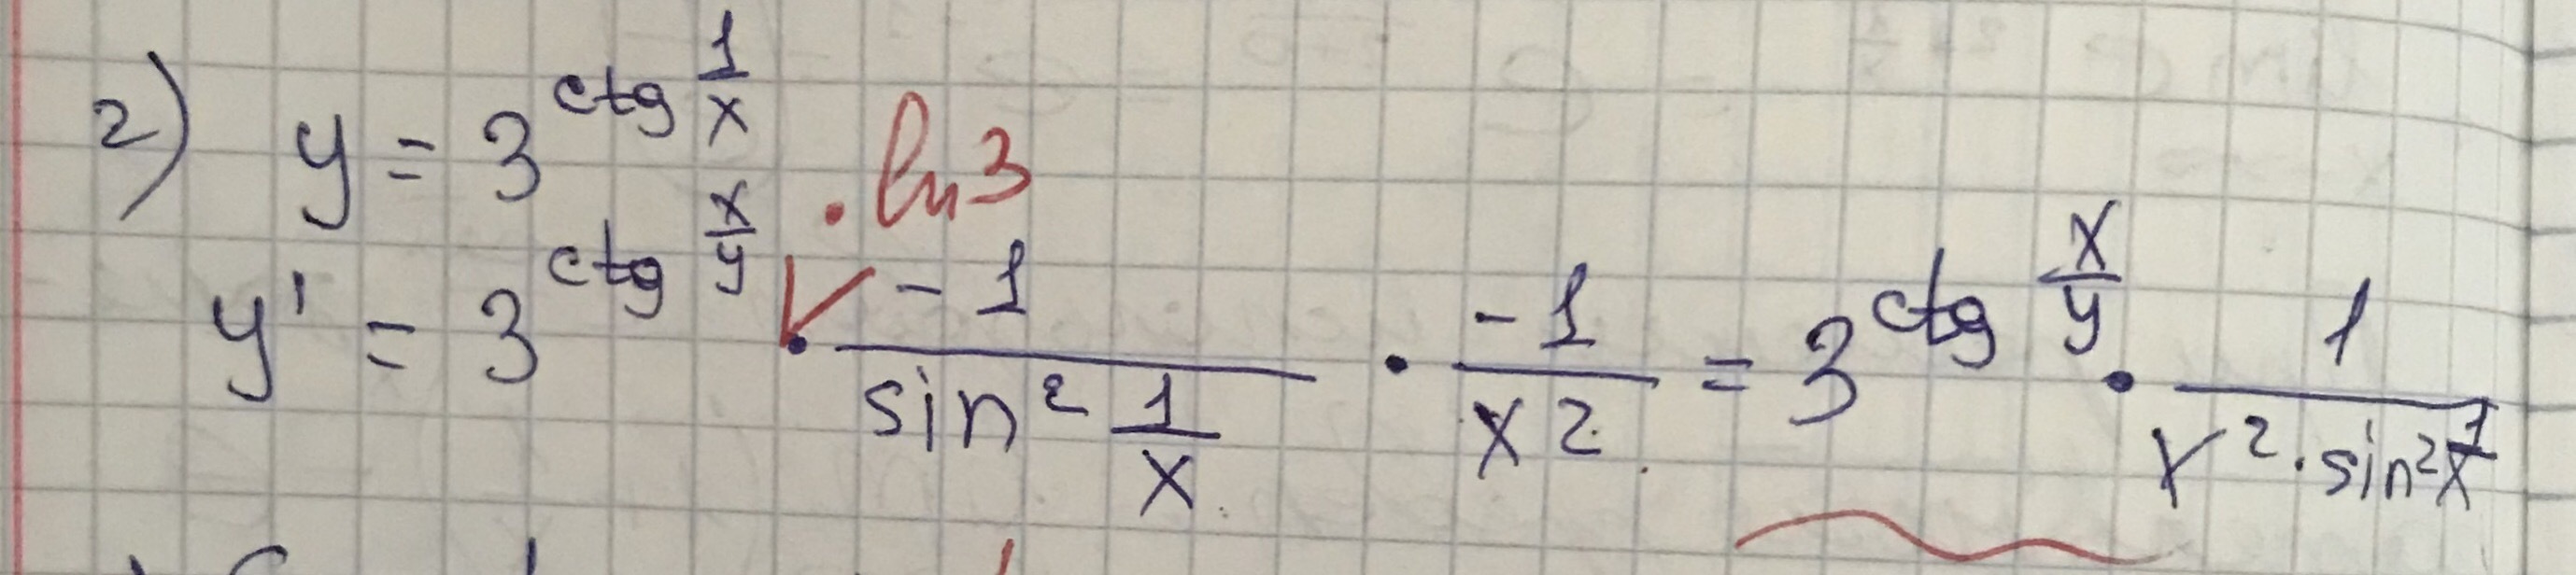 2) y = 3^{ctg \frac{1}{x}}
· ln3
y' = 3^{ctg \frac{x}{y}} · \frac{-1}{sin^2 \frac{1}{x}} · \frac{-1}{x^2} = 3^{ctg \frac{x}{y}} · \frac{1}{x^2 · sin^2 \frac{1}{x}}